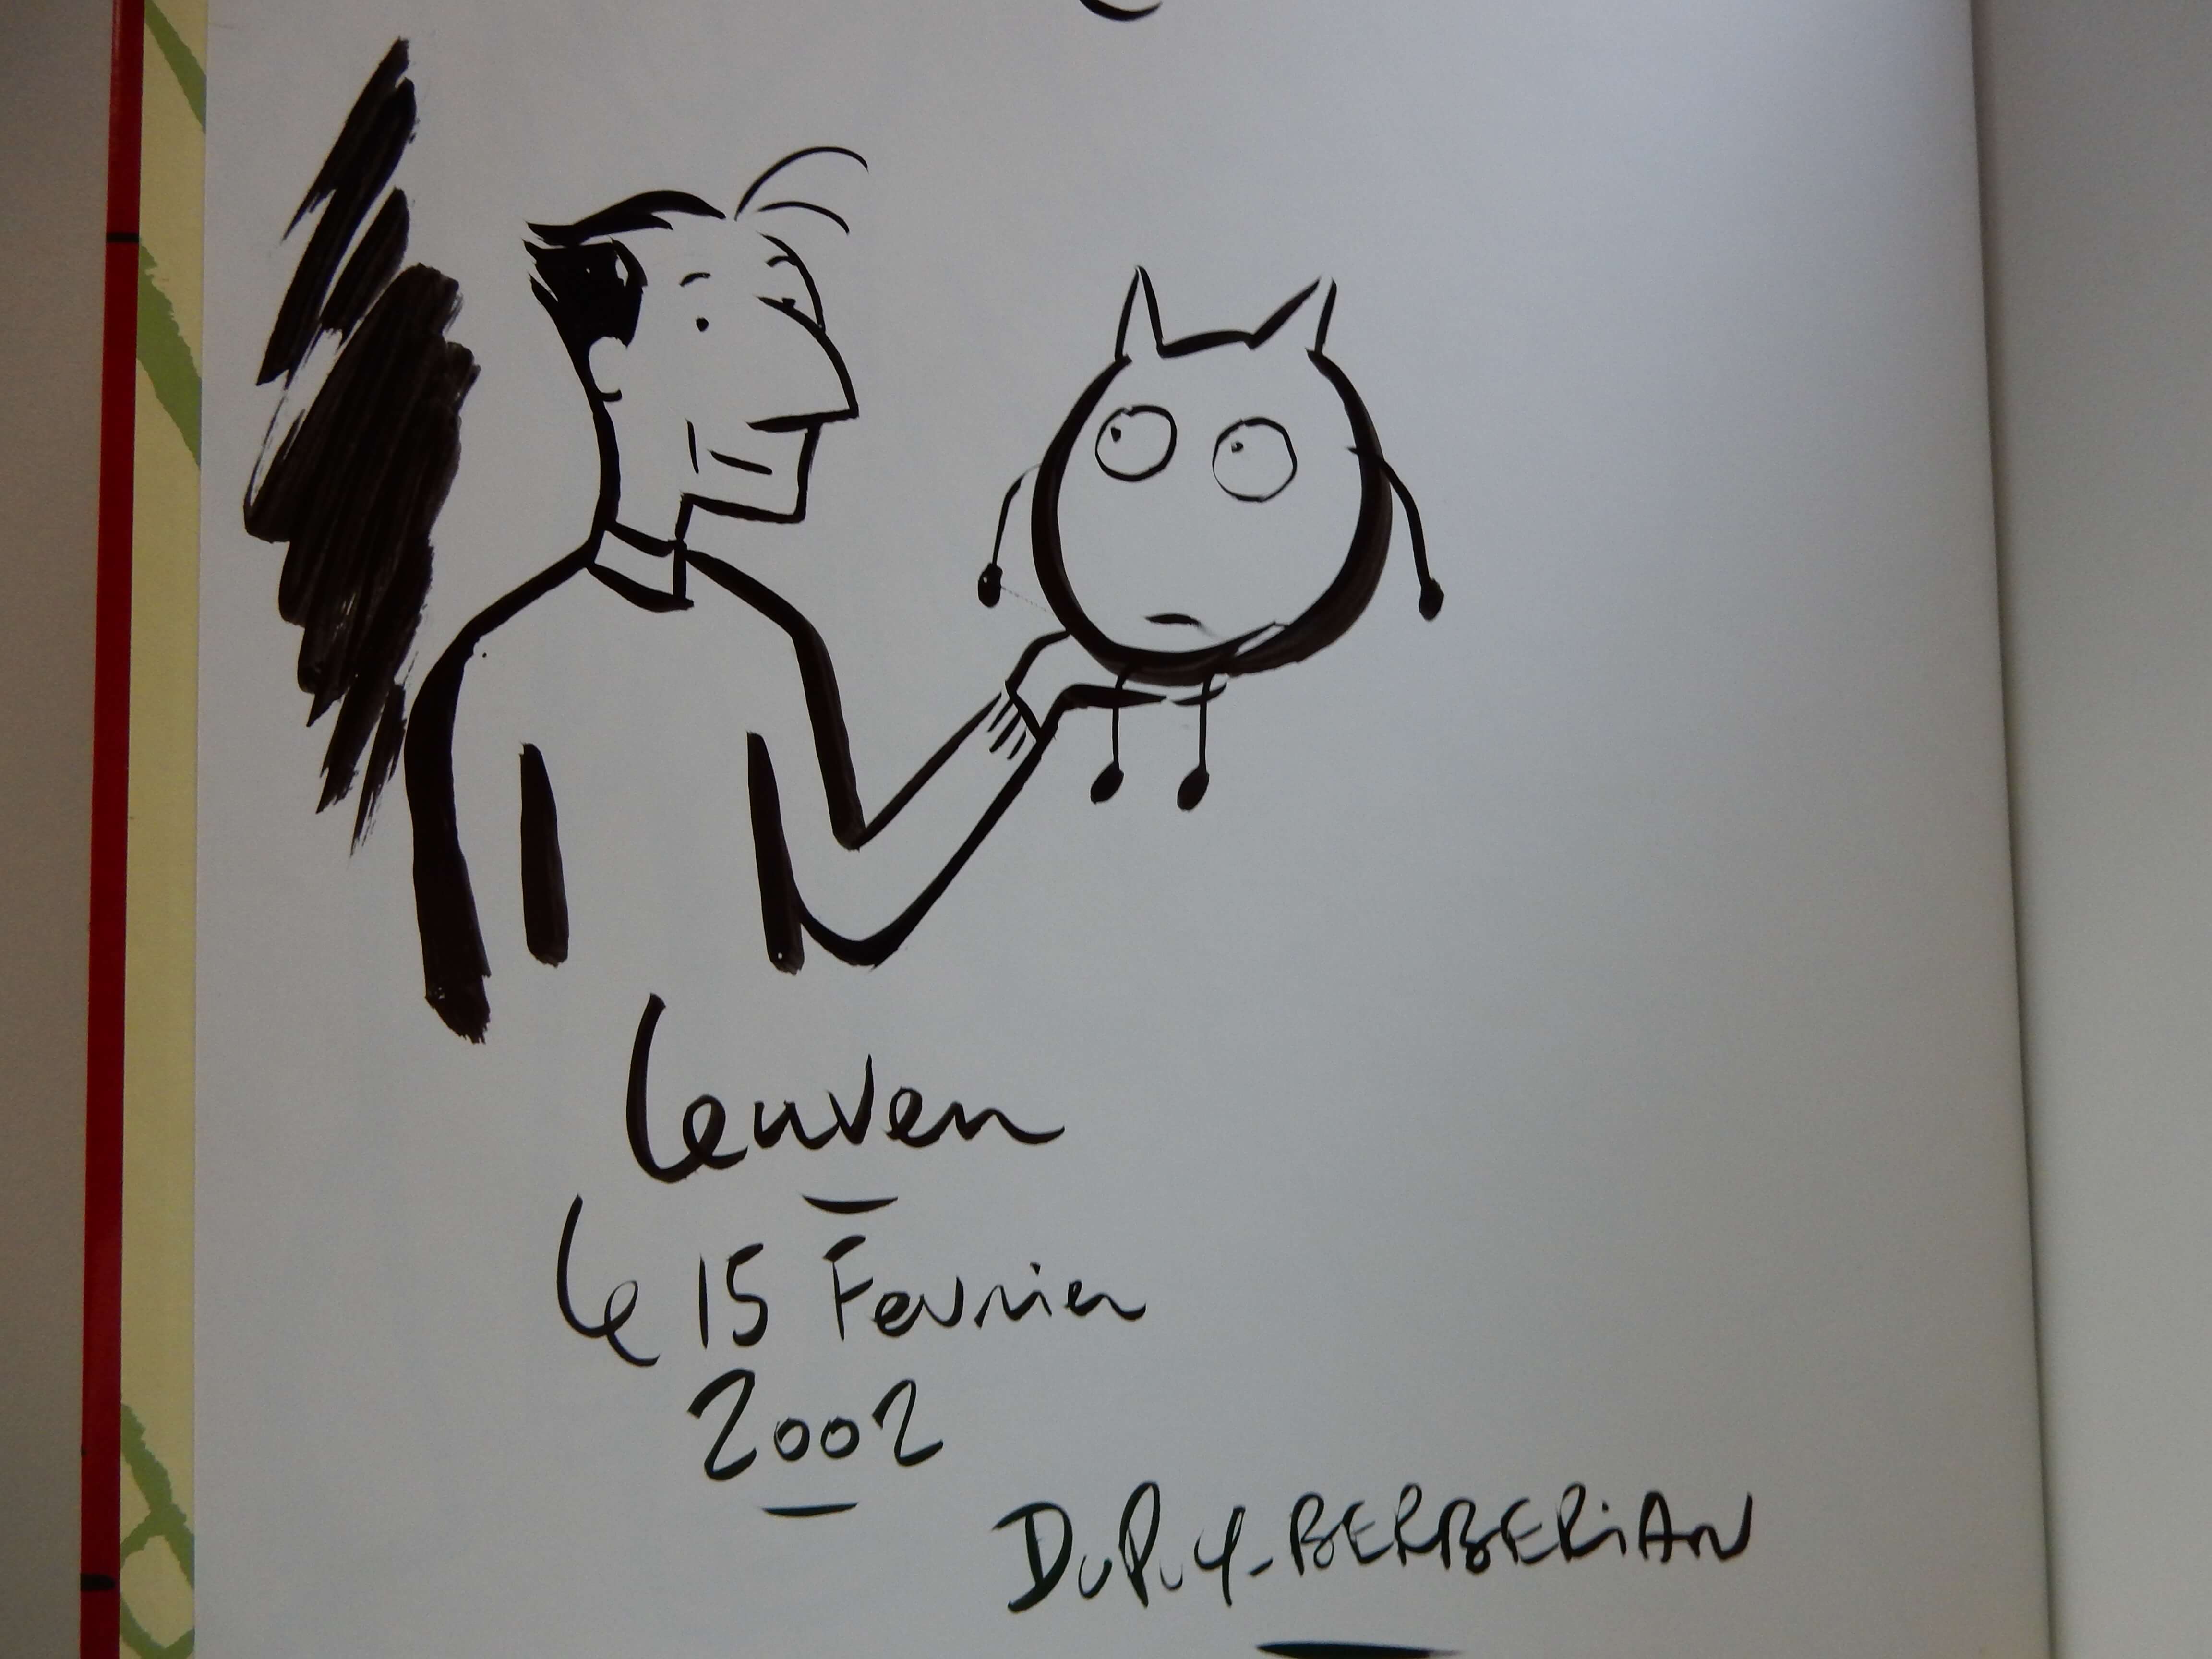 Leuven
le 15 Fevrier
2002
DuPuy-BERBERiAN